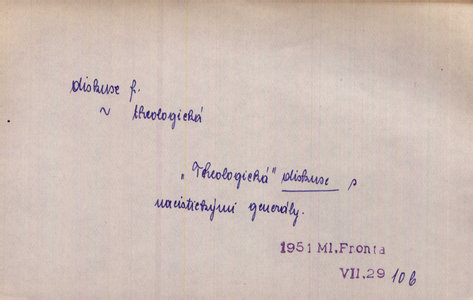 diskuse f.
~ theologická
„Theologická" diskuse s
nacistickými generály.
1951 Ml.Fronta
VII.29 10b